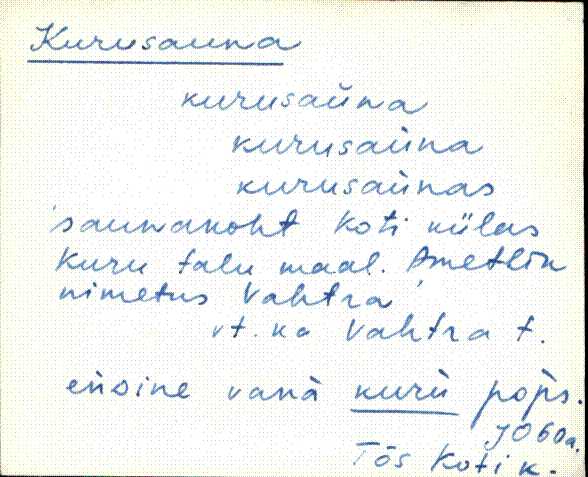 Kurusauna
kurusaùna
kurusaùna
kurusaùnas
'saunakoht Koti külas
Kuru talu maal. Ametlik
nimetus Vahtra'
vt. ka Vahtra t.
eǹsine vanà kurù pop̀s.
JÕ 60a.
Tõs Koti k.